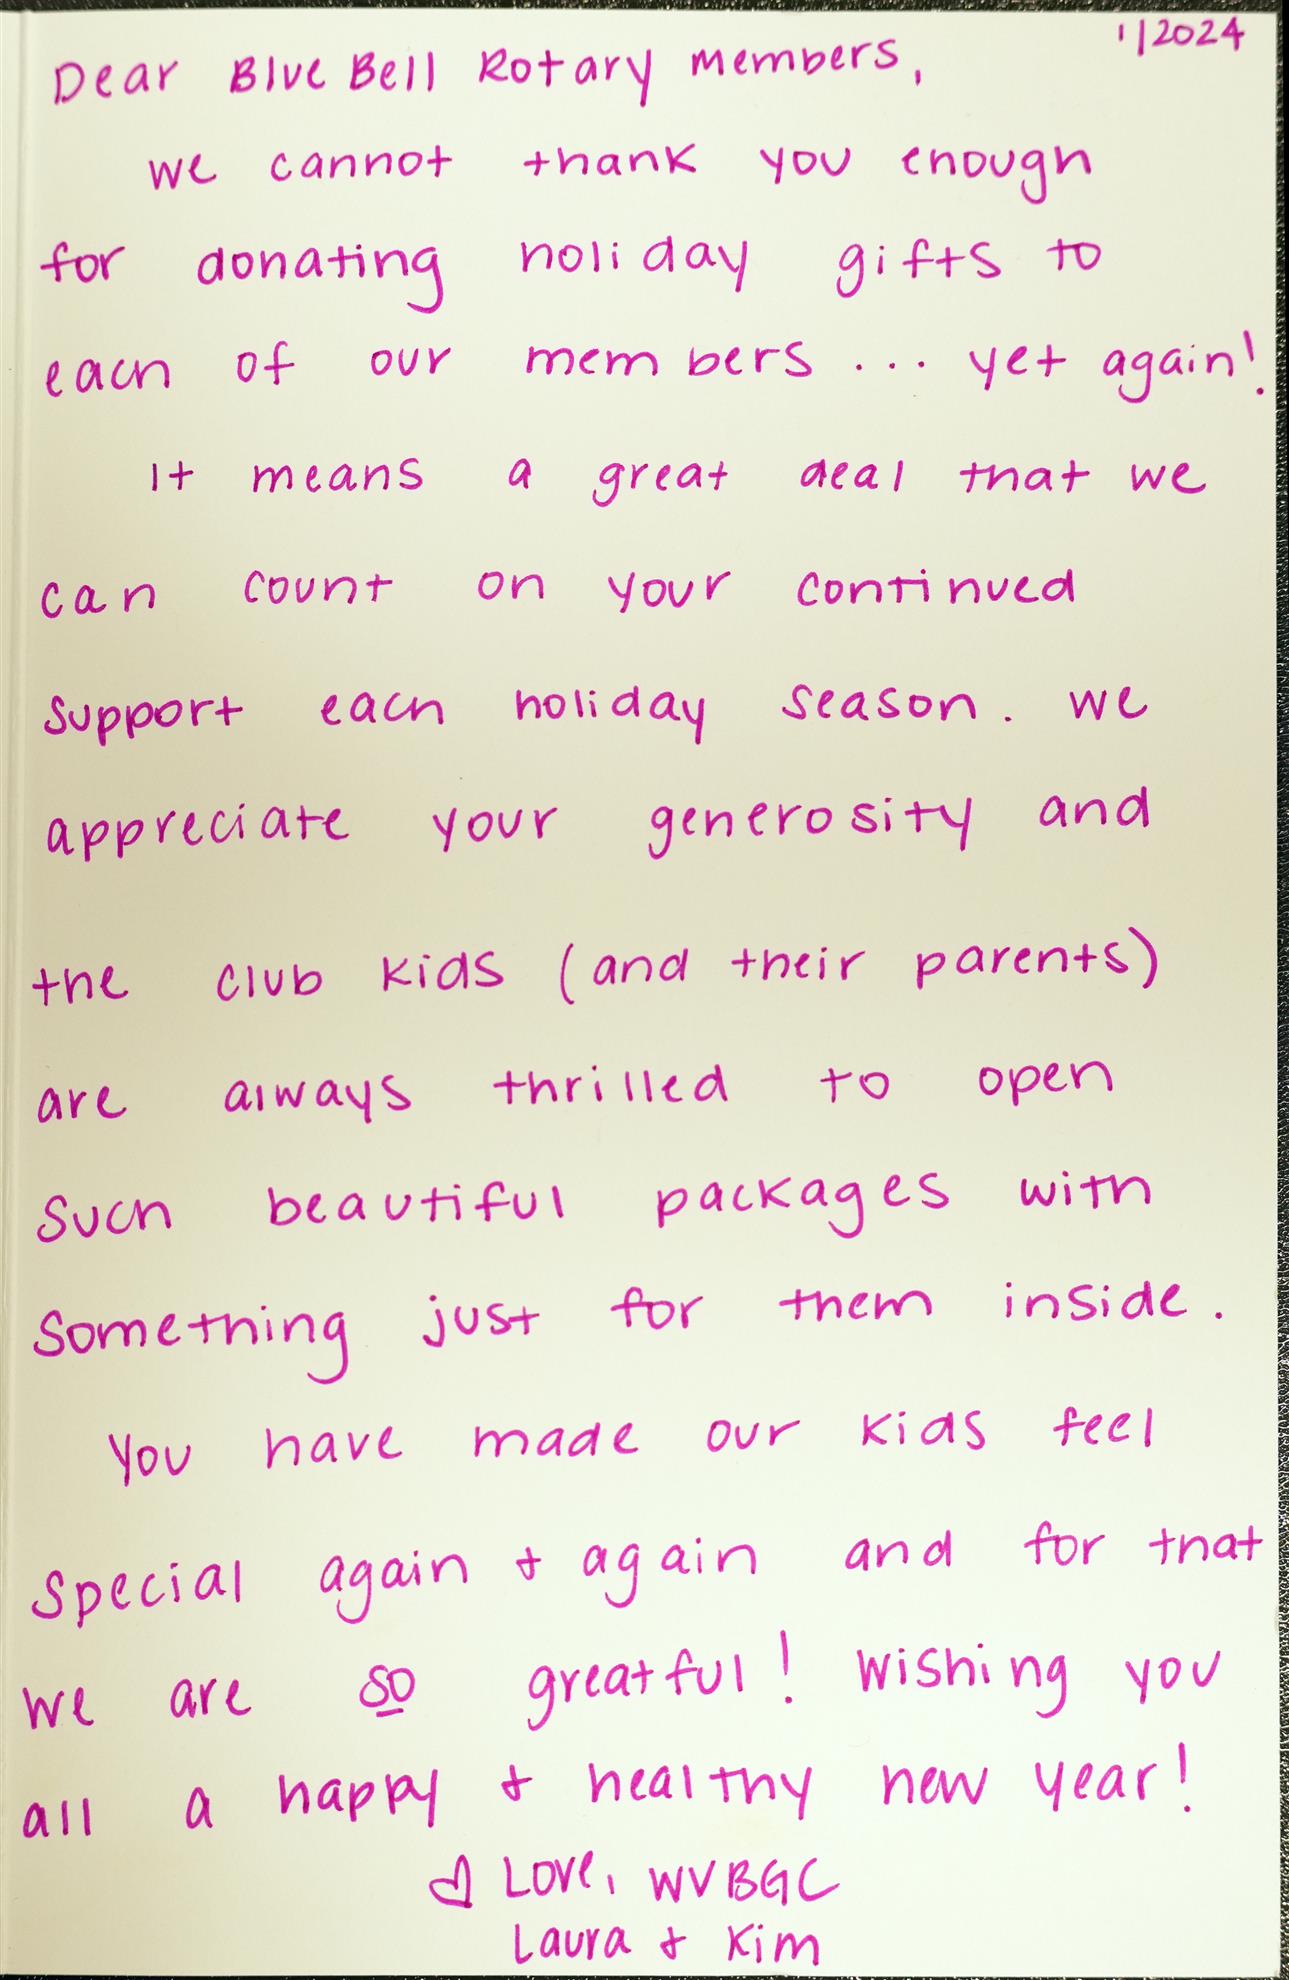 1/2024
Dear Blue Bell Rotary members,
we cannot thank you enough
for donating holiday gifts to
each of our members... yet again!
It means a great deal that we
can count on your continued
support each holiday season. we
appreciate your generosity and
the club kids (and their parents)
are always thrilled to open
such beautiful packages with
something just for them inside.
You have made our kids feel
special again + again and for that
we are so greatful! Wishing you
all a happy + healthy new year!
♡ Love, WVBGC
Laura + Kim